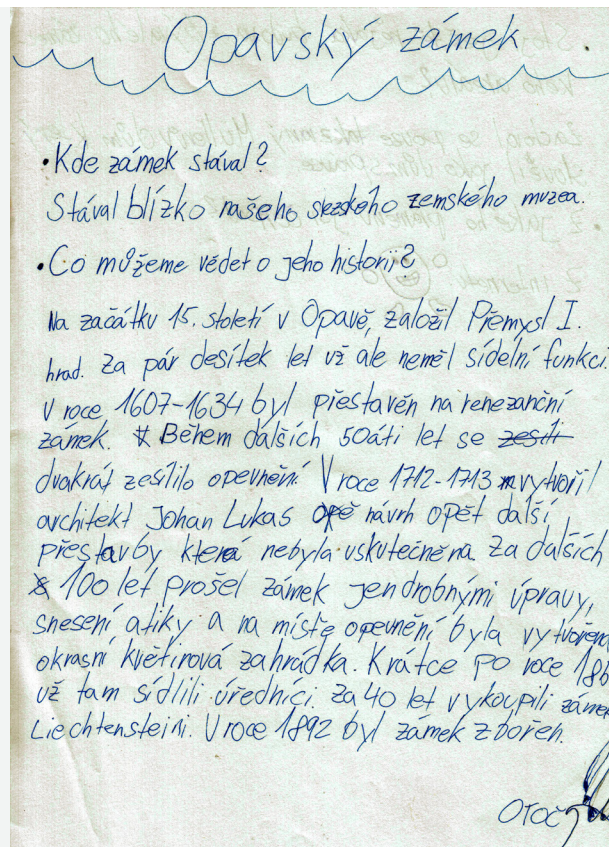 Opavský zámek
• Kde zámek stával?
Stával blízko našeho slezského zemského muzea.
• Co můžeme vědet o jeho historii?
Na začátku 15. století v Opavě, založil Přemysl I.
hrad. Za pár desítek let už ale neměl sídelní funkci.
V roce 1607-1634 byl přestavěn na renezanční
zámek. Během dalších 50áti let se zesíli
dvakrát zesílilo opevnění. V roce 1712-1713 vytvořil
architekt Johan Lukas opě návrh opět další
přestavby která nebyla uskutečněna. Za dalších
100 let prošel zámek jen drobnými úpravy,
snesení atiky a na místě opevnění byla vytvořena
okrasní květinová zahrádka. Krátce po roce 186
už tam sídlili úředníci. Za 40 let vykoupili zámek
Liechtensteini. V roce 1892 byl zámek zbořen.
Otoč